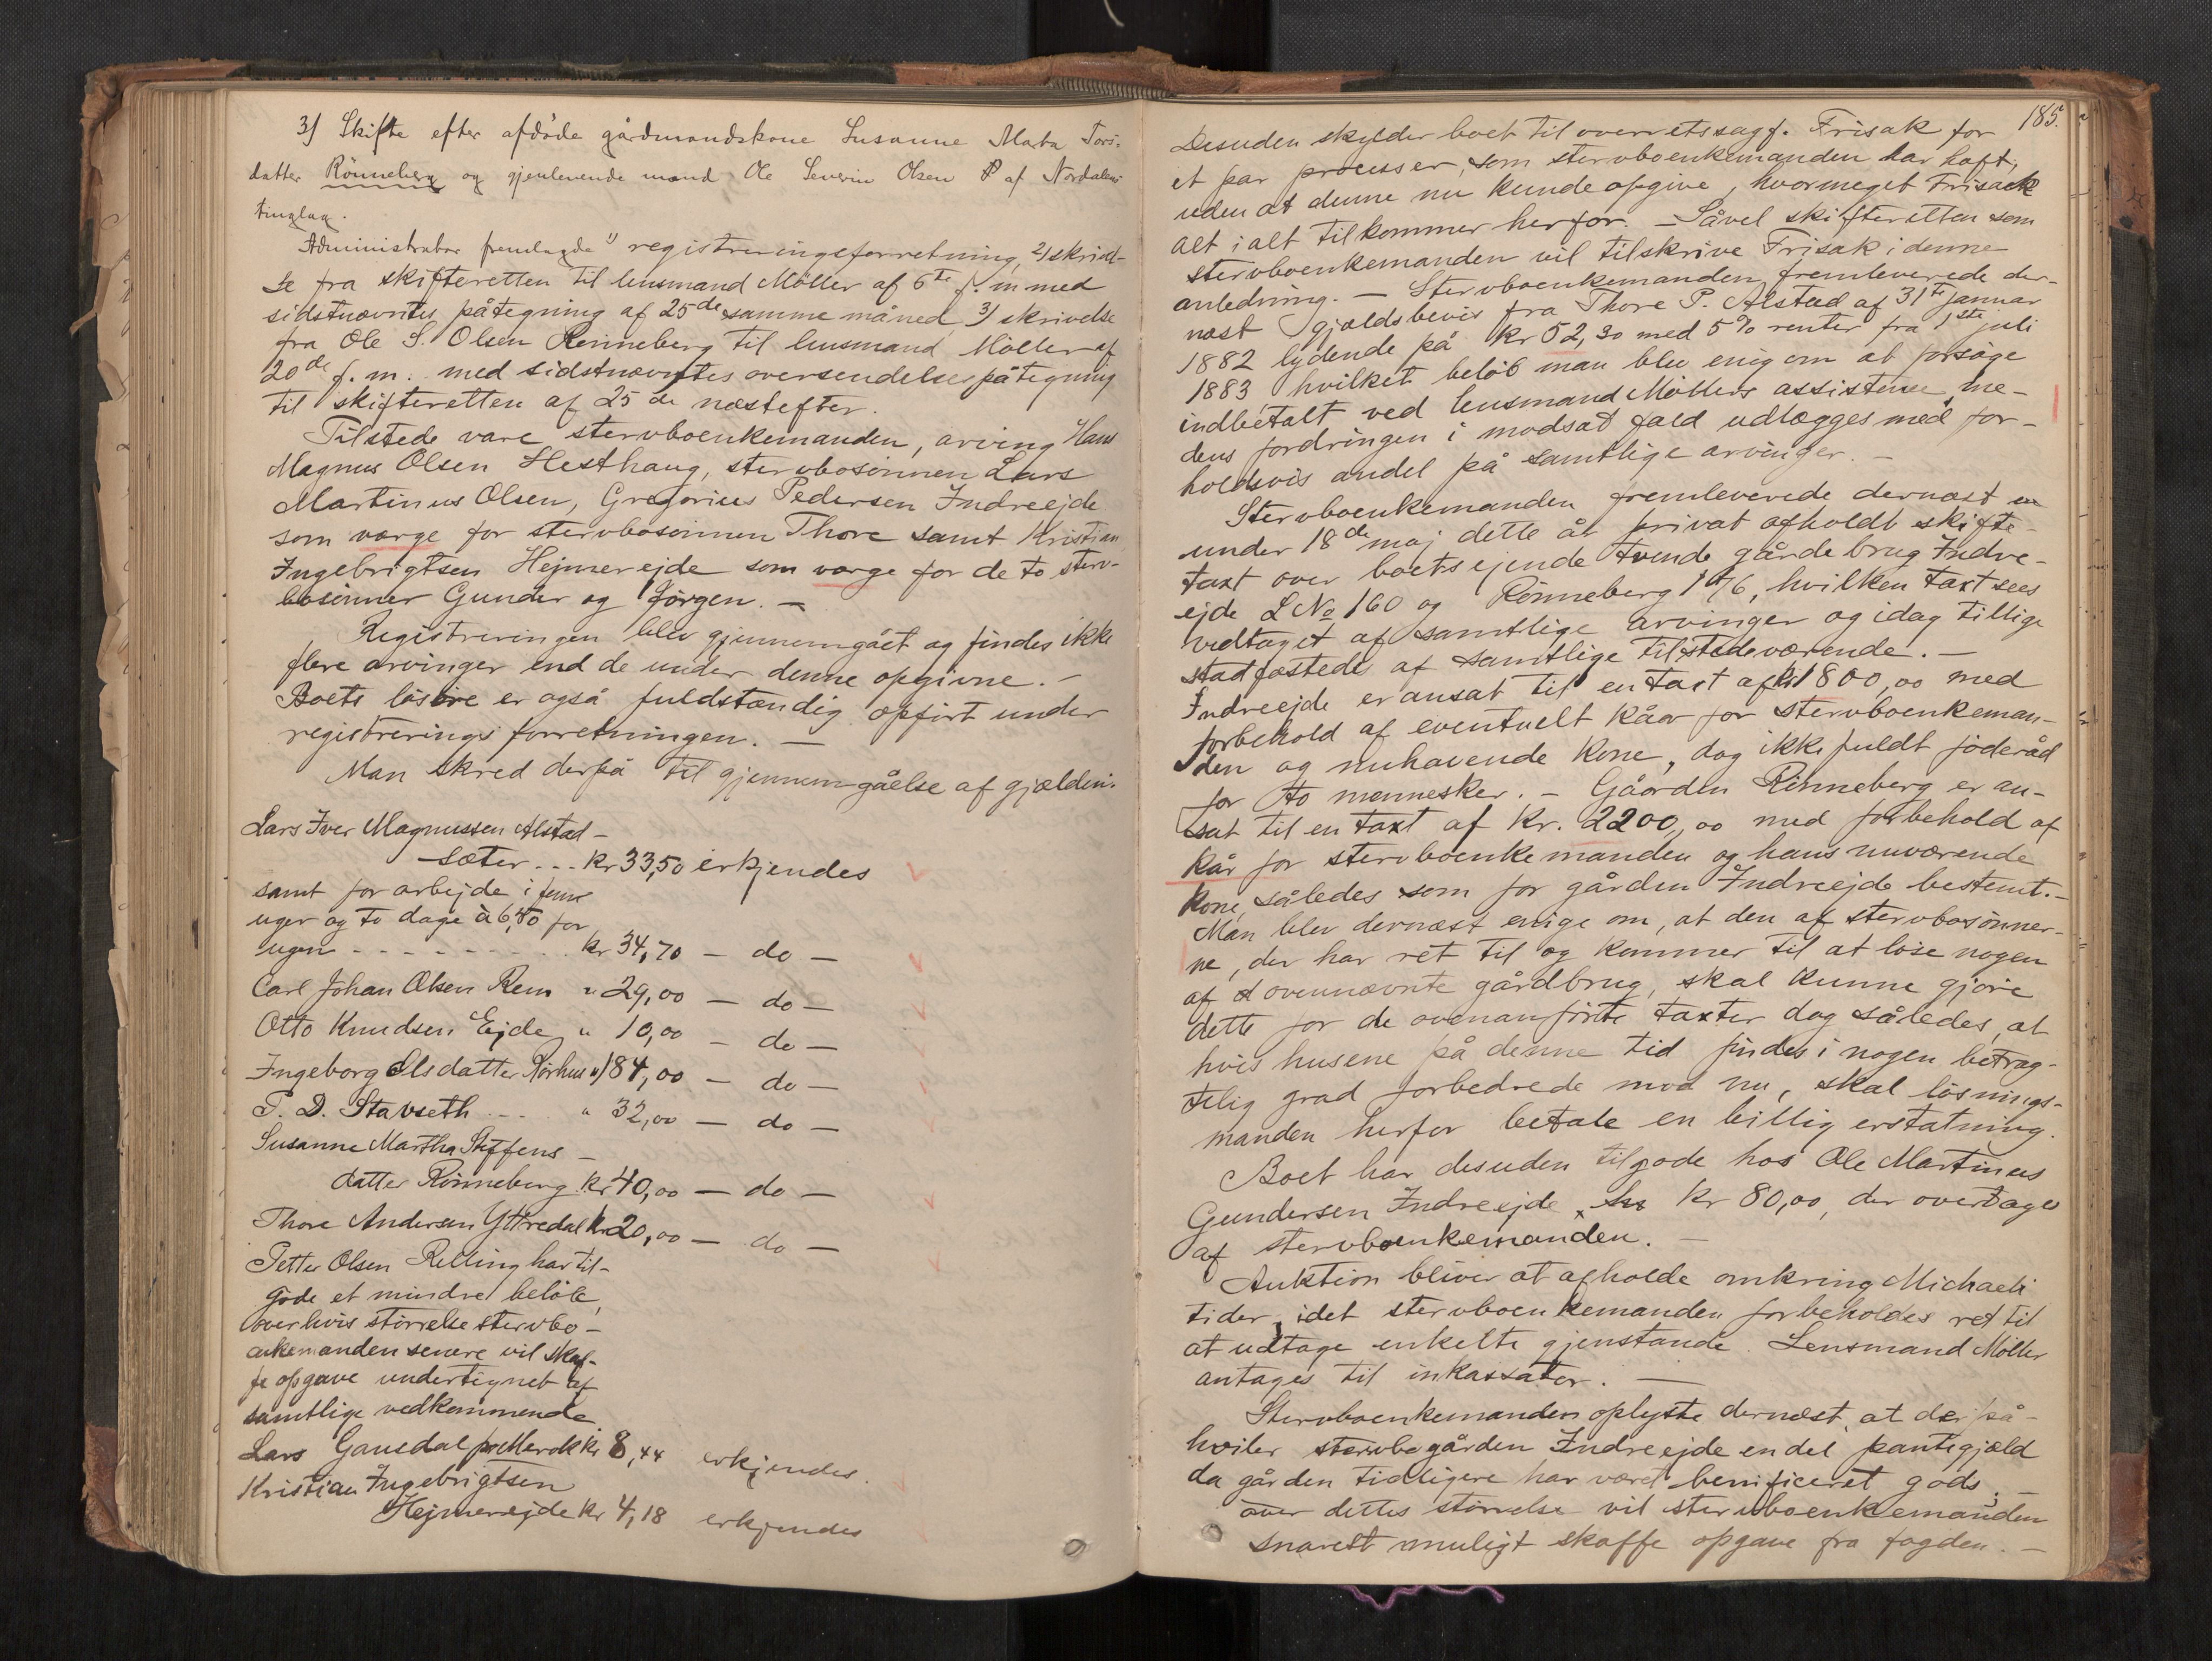 3) Skifte efter afdöde gårdmandskone Susanne Marta Tors-
datter Rönneberg og gjenlevende mand Ole Severin Olsen R af Nordalens
tinglag.
Administrator fremlagde 1) registreringsforretning, 2) skrivel-
se fra skifteretten til lensmand Möller af 6te f. m med
sidstnævntes påtegning af 25de samme måned 3) skrivelse
fra Ole S. Olsen Rönneberg til lensmand Möller af
20de f. m. med sidstnævntes oversendelsespåtegning
til skifteretten af 25de næstefter.
Tilstede vare stervboenkemanden, arving Hans
Magnus Olsen Hesthaug, stervbosönnen Lars
Martinus Olsen, Gregorius Pedersen Indreejde
som værge for stervbosönnen Thore samt Kristian
Ingebrigtsen Hejmerejde som værge for de to sterv-
bosönner Gunder og Jörgen. –
Registreringen blev gjennemgået og findes ikke
flere arvinger end de under denne opgivne. –
Boets lösöre er også fuldstændig opfört under
registreringsforretningen. –
Man skred derpå til gjennemgåelse af gjælden.
Lars Iver Magnussen Alstad-
sæter . . . kr 33,50 erkjendes
samt for arbejde i fem
uger og to dage à 6,50 for
ugen - - - - - - - - - kr 34,70 – do –
Carl Johan Olsen Rem " 29,00 – do –
Otto Knudsen Ejde " 10,00 – do –
Ingeborg Olsdatter Rörhus " 184,00 – do –
P. D. Stavseth . . . " 32,00 – do –
Susanne Martha Steffens –
datter Rönneberg kr 40,00 – do –
Thore Andersen Yttredal kr 20,00 – do –
Petter Olsen Relling har til-
gode et mindre belöb,
over hvis störrelse stervbo-
enkemanden senere vil skaf-
fe opgave undertegnet af
samtlige vedkommende
Lars Gausdal pr Merok kr 8,44 erkjendes.
Kristian Ingebrigtsen
Hejmerejde kr 4,18 erkjendes
185.
Desuden skylder boet til overretssagf. Frisak for
et par processer, som stervboenkemanden har haft,
uden at denne nu kunde opgive, hvormeget Frisak
alt i alt tilkommer herfor. – Såvel skifteretten som
stervboenkemanden vil tilskrive Frisak i denne
anledning. – Stervboenkemanden fremleverede der-
næst gjældsbevis fra Thore P. Alstad af 31te januar
1882 lydende på kr 52,30 med 5% renter fra 1ste juli
1883 hvilket belöb man blev enig om at forsöge
indbetalt ved lensmand Möllers assistence, me-
dens fordringen i modsat fald udlægges med for-
holdsvis andel på samtlige arvinger. –
Stervboenkemanden fremleverede dernæst en
under 18de maj dette år privat afholdt skifte-
taxt over boets ejende tvende gårdebrug Indre-
ejde L No 160 og Rönneberg 176, hvilken taxt sees
vedtaget af samtlige arvinger og idag tillige
stadfæstedes af samtlige tilstedeværende. –
Indreejde er ansat til en taxt af kr 1800,00 med
forbehold af eventuelt kår for stervboenkeman-
den og nuhavende kone, dog ikke fuldt föderåd
for to mennesker. – Gården Rönneberg er an-
sat til en taxt af kr. 2200,00 med forbehold af
kår for stervboenkemanden og hans nuværende
kone, således som for gården Indreejde bestemt. –
Man blev dernæst enige om, at den af stervbosönner-
ne, der har ret til og kommer til at löse nogen
af ovennævnte gårdbrug, skal kunne gjöre
dette for de ovenanförte taxter dog således, at
hvis husene på denne tid findes i nogen betrag-
telig grad forbedrede mod nu, skal lösnings-
manden herfor betale en billig erstatning.
Boet har desuden tilgode hos Ole Martinus
Gundersen Indreejde kr 80,00, der overtages
af stervboenkemanden. –
Auktion bliver at afholde omkring Michaeli
tider, idet stervboenkemanden forbeholdes ret til
at udtage enkelte gjenstande. Lensmand Möller
antages til inkassator. –
Stervboenkemanden oplyste dernæst, at der på-
hviler stervbogården Indreejde en del pantegjæld
da gården tidligere har været benificeret gods; –
over dettes störrelse vil stervboenkemanden
snarest muligt skaffe opgave fra fogden. –